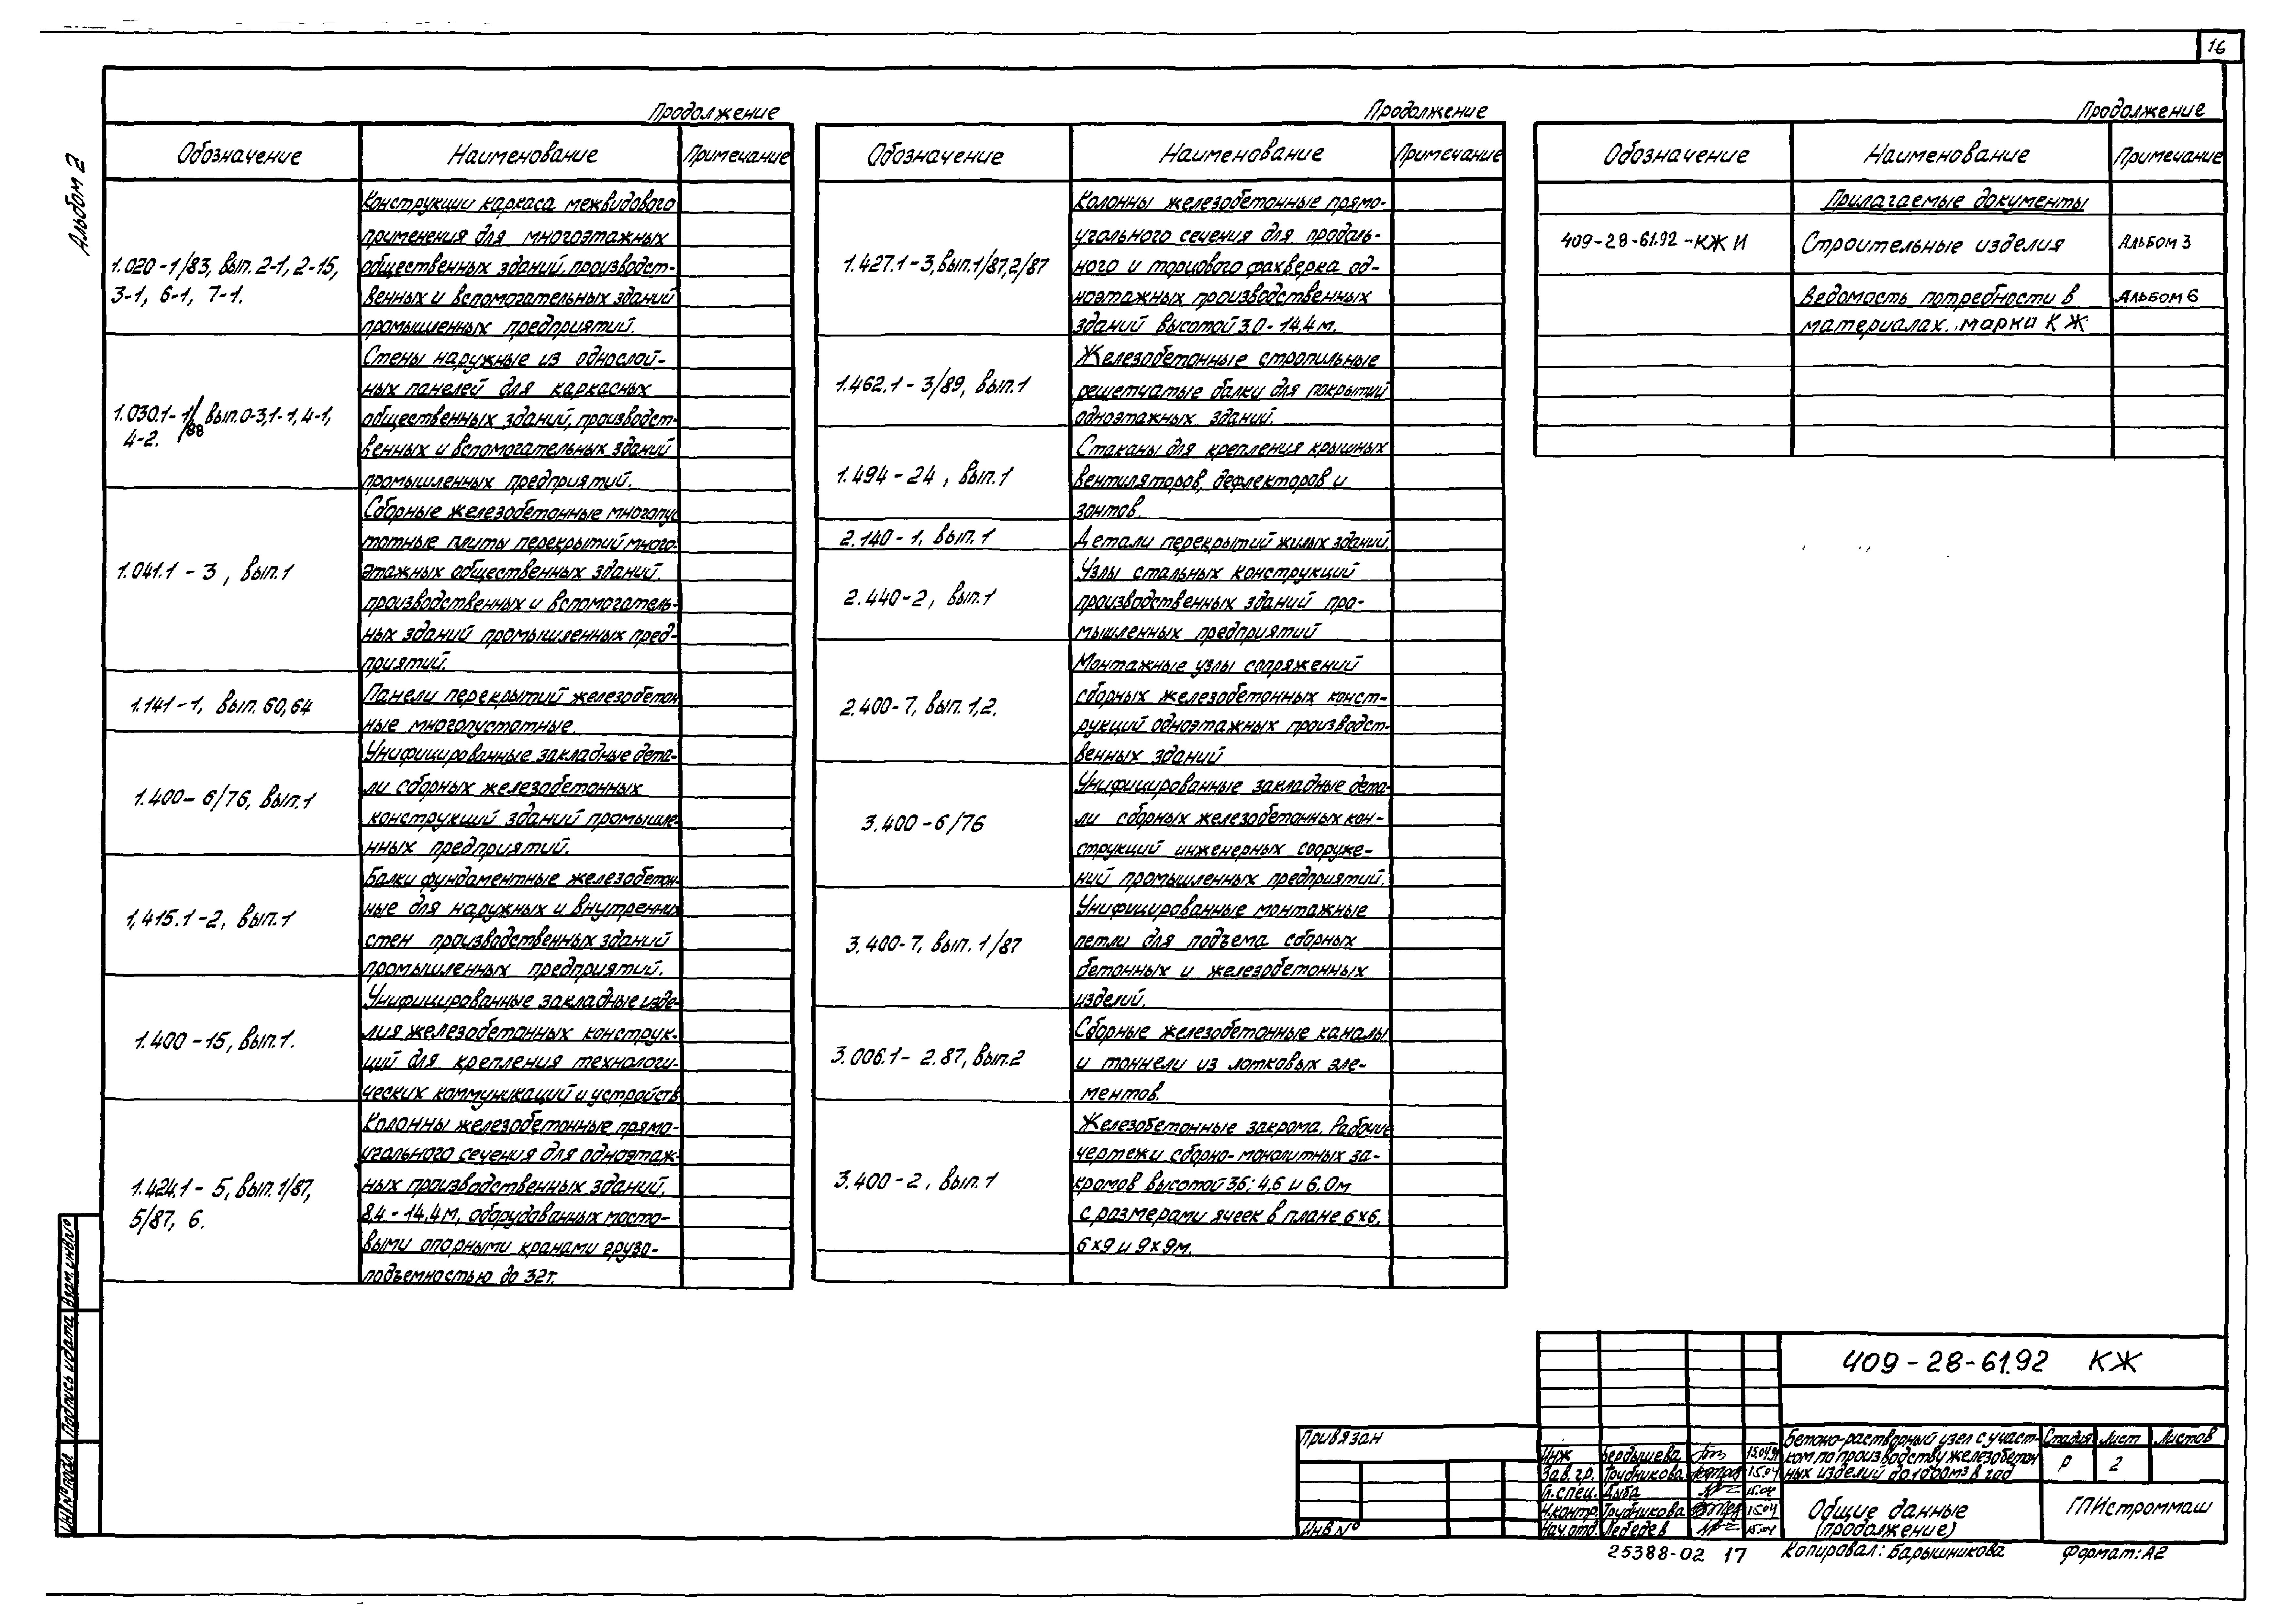 16
Альбом 2
Продолжение
Обозначение Наименование Примечание
1.020-1/83, вып. 2-1, 2-15,
3-1, 6-1, 7-1.
Конструкции каркаса межвидового
применения для многоэтажных
общественных зданий, производст-
венных и вспомогательных зданий
промышленных предприятий.
1.030.1-1/88 вып.0-3,1-1,4-1,
4-2.
Стены наружные из однослой-
ных панелей для каркасных
общественных зданий, производст-
венных и вспомогательных зданий
промышленных предприятий.
1.041.1-3, вып.1
Сборные железобетонные многопус
тотные плиты перекрытий много-
этажных общественных зданий,
производственных и вспомогатель-
ных зданий промышленных пред-
приятий.
1.141-1, вып. 60,64
Панели перекрытий железобетон
ные многопустотные.
1.400-6/76, вып.1
Унифицированные закладные дета-
ли сборных железобетонных
конструкций зданий промышле-
нных предприятий.
1.415.1-2, вып.1
Балки фундаментные железобетон-
ные для наружных и внутренних
стен производственных зданий
промышленных предприятий.
1.400-15, вып.1.
Унифицированные закладные изде-
лия железобетонных конструк-
ций для крепления технологи-
ческих коммуникаций и устройств
1.424.1-5, вып.1/87,
5/87, 6.
Колонны железобетонные прямо-
угольного сечения для одноэтаж-
ных производственных зданий,
8,4-14,4м, оборудованных мосто-
выми опорными кранами грузо-
подъемностью до 32т.
Продолжение
Обозначение Наименование Примечание
1.427.1-3, вып.1/87,2/87
Колонны железобетонные прямо-
угольного сечения для продоль-
ного и торцового фахверка од-
ноэтажных производственных
зданий высотой 3,0-14,4м.
1.462.1-3/89, вып.1
Железобетонные стропильные
решетчатые балки для покрытий
одноэтажных зданий.
1.494-24, вып.1
Стаканы для крепления крышных
вентиляторов, дефлекторов и
зонтов.
2.140-1, вып.1
Детали перекрытий жилых зданий.
2.440-2, вып.1
Узлы стальных конструкций
производственных зданий про-
мышленных предприятий
2.400-7, вып.1,2.
Монтажные узлы сопряжений
сборных железобетонных конст-
рукций одноэтажных производст-
венных зданий
3.400-6/76
Унифицированные закладные дета-
ли сборных железобетонных кон-
струкций инженерных сооруже-
ний промышленных предприятий.
3.400-7, вып. 1/87
Унифицированные монтажные
петли для подъема сборных
бетонных и железобетонных
изделий.
3.006.1-2.87, вып.2
Сборные железобетонные каналы
и тоннели из лотковых эле-
ментов.
3.400-2, вып.1
Железобетонные закрома. Рабочие
чертежи сборно-монолитных за-
кромов высотой 3,6; 4,6 и 6,0м
с размерами ячеек в плане 6х6,
6х9 и 9х9м.
Продолжение
Обозначение Наименование Примечание
Прилагаемые документы
409-28-61.92-КЖ И Строительные изделия Альбом 3
Ведомость потребности в Альбом 6
материалах, марки КЖ
Взам. инв.№
Подпись и дата
Инв № подл
Привязан
Инв №
409-28-61.92 КЖ
Инж Бердышева 15.04.91
Зав. гр. Трудникова 15.04
Гл. спец. Дыба 15.04
Н.контр. Трудникова 15.04
Нач. отд. Лебедев 15.04
Бетоно-растворный узел с участ-
ком по производству железобетон
ных изделий до 1000м3 в год
Стадия Лист Листов
Р 2
Общие данные
(продолжение)
ГПИстроммаш
25388-02 17 Копировал: Барышникова Формат: А2